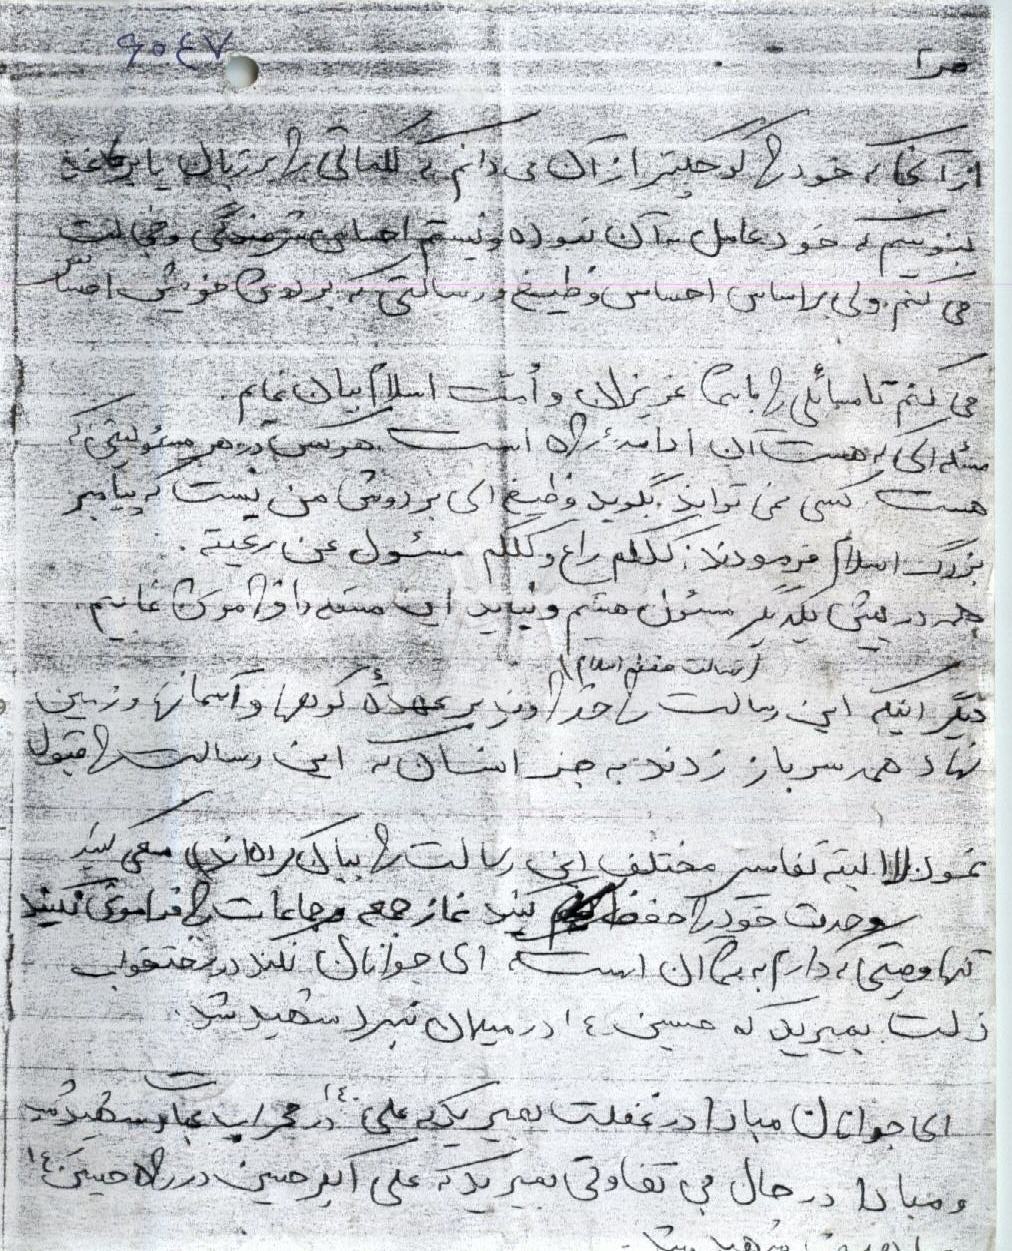 ۹۰۴۷
از آنجا که خود را کوچکتر از آن می دانم که کلماتی را بر زبان یا بر کاغذ
بنویسم که خود عامل به آن نبوده و نیستم احساس شرمندگی و خجالت
می کنم. ولی براساس احساس وظیفه و رسالتی که بر دوش خویش احساس
می کنم تا مسائلی را با شما عزیزان و امت اسلام بیان نمایم.
مسئله ای که هست ان ادامه راه است هرکس در هر مسئولیتی که
هست کسی نمی تواند بگوید وظیفه ای بر دوش من نیست که پیامبر
بزرگ اسلام فرمودند: کلکم راع و کلکم مسئول عن رعیته.
همه در پیش یکدیگر مسئول هستیم و نباید این مسئله را فراموش نمائیم.
(رسالت اسلام)
دیگر اینکه این رسالت را خداوند بر عهدهٔ کوهها و آسمانها و زمین
نهاد همه سرباز زدند به جز انسان که این رسالت را قبول
نمود البته تفاسیر مختلف این رسالت را بیان کرده اند) سعی کنید
وحدت خود را حفظ کنید نماز جمعه و جماعات را فراموش نکنید
تنها وصیتی که دارم به شما ان است ای جوانان نکند در رختخواب
ذلت بمیرید که حسین ع در میدان نبرد شهید شد.
ای جوانان مبادا در غفلت بمیرید که علی ع در محراب عبادت شهید شد
و مبادا در حال بی تفاوتی بمیرید که علی اکبر حسین در راه حسین ع
شهید شد.